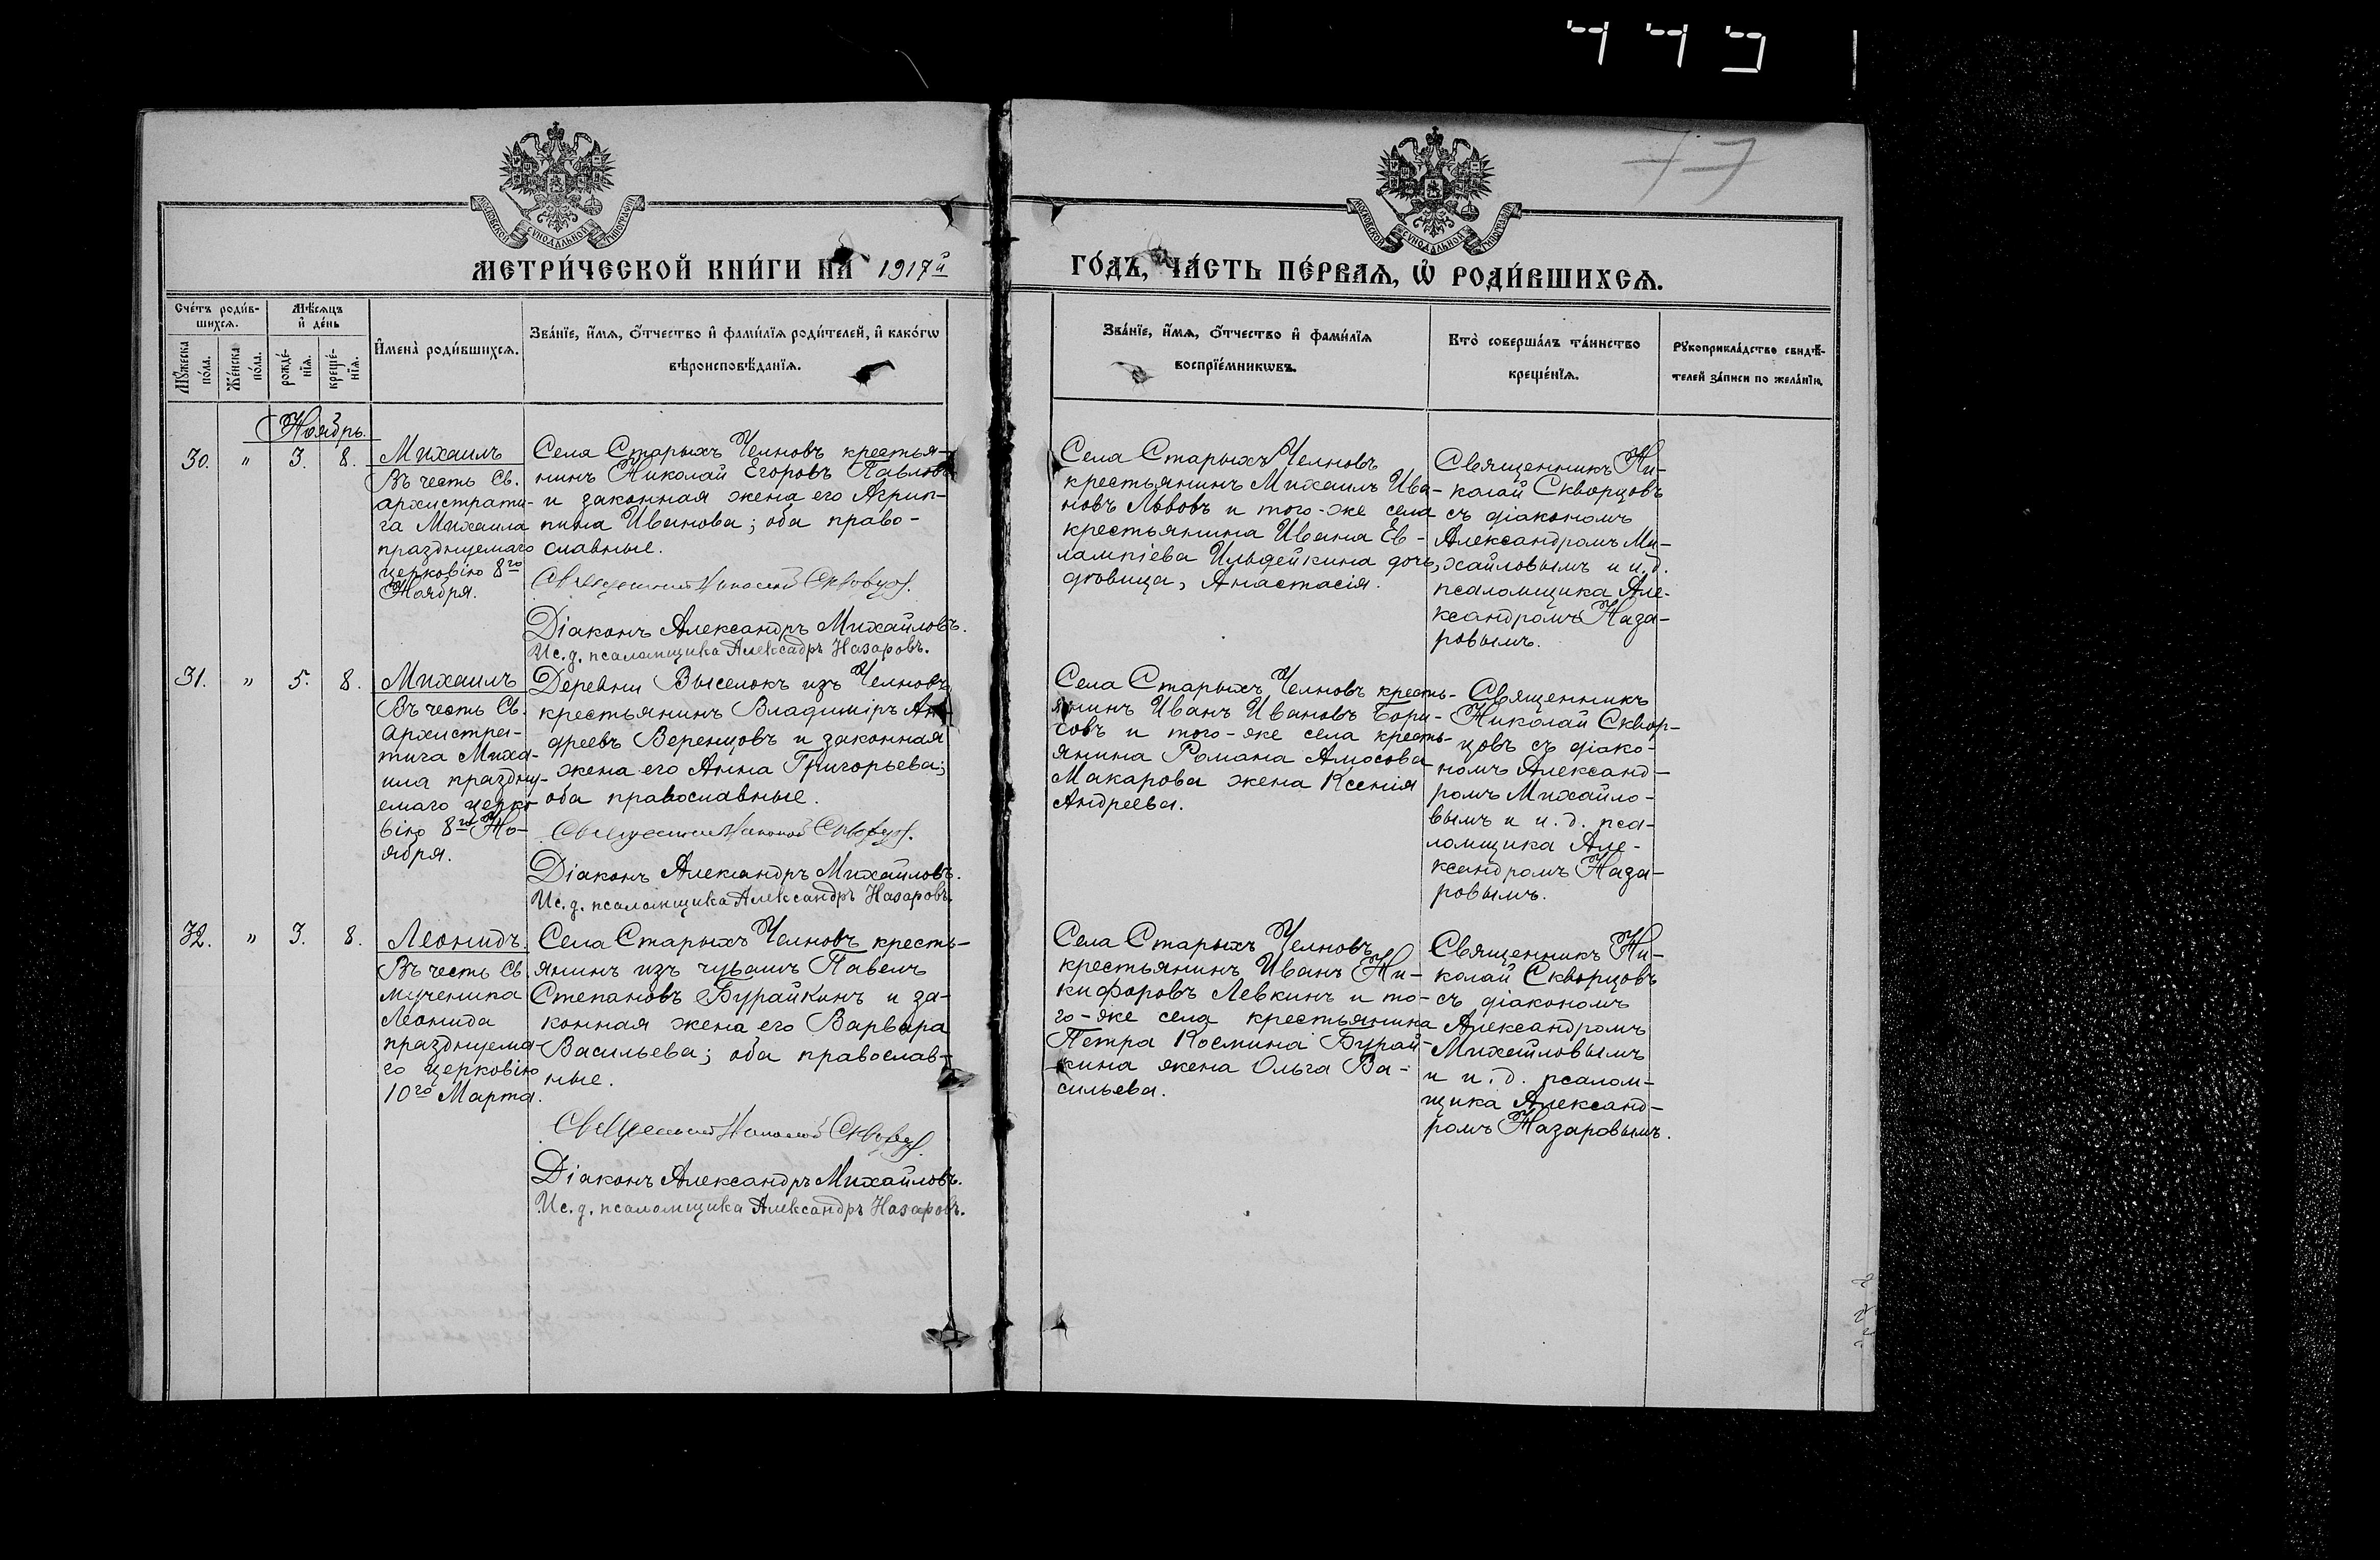 77
МОСКОВСКОЙ СѴНОДАЛЬНОЙ ТИПОГРАФІИ
МОСКОВСКОЙ СѴНОДАЛЬНОЙ ТИПОГРАФІИ
МЕТРИ́ЧЕСКОЙ КНИ́ГИ НА 1917й
ГО́ДЪ, ЧА́СТЬ ПЕ́РВАѦ, Ѽ РОДИ́ВШИХСѦ.
Сче́тъ роди́в-
шихсѧ.
Мꙋ́жеска
по́ла.
Же́нска
по́ла.
Мѣ́сѧцъ
и҆ де́нь
рожде́-
нїѧ.
креще́-
нїѧ.
И҆мена̀ роди́вшихсѧ.
Зва́нїе, и҆́мѧ, ѻ҆́тчество и҆ фами́лїѧ роди́телей, и҆ како́гѡ
вѣроисповѣ́данїѧ.
Зва́нїе, и҆́мѧ, ѻ҆́тчество и҆ фами́лїѧ
воспрїе́мникѡвъ.
Кто̀ соверша́лъ та́инство
креще́нїѧ.
Рꙋкоприкла́дство свидѣ́-
телей за́писи по жела́нїю.
Ноябрь.
30. " 3. 8.
Михаилъ
Въ честь Св.
архистрати-
га Михаила
празднуемаго
церковію 8го
Ноября.
Села Старыхъ Челновъ крестья-
нинъ Николай Егоровъ Павловъ
и законная жена его Агрип-
пина Иванова; оба право-
славные.
Священникъ Николай Скворцовъ.
Діаконъ Александръ Михайловъ.
Ис. д. псаломщика Алексадръ Назаровъ.
Села Старыхъ Челновъ
крестьянинъ Михаилъ Ива-
новъ Львовъ и того-же села
крестьянина Ивана Ев-
лампіева Ильдейкина дочь,
дѣвица, Анастасія.
Священникъ Ни-
колай Скворцовъ
съ діакономъ
Александромъ Ми-
хайловымъ и и.д.
псаломщика Але-
ксандромъ Наза-
ровымъ.
31. " 5. 8.
Михаилъ
Въ честь Св.
Архистра-
тига Миха-
ила праздну-
емаго церко-
вію 8го Но-
ября.
Деревни Выселокъ изъ Челновъ
крестьянинъ Владиміръ Ан-
дреевъ Веренцовъ и законная
жена его Анна Григорьева;
оба православные.
Священникъ Николай Скворцовъ.
Діаконъ Александръ Михайловъ.
Ис. д. псаломщика Александръ Назаровъ.
Села Старыхъ Челновъ кресть-
янинъ Иванъ Ивановъ Бори-
совъ и того-же села кресть-
янина Романа Амосова
Макарова жена Ксенія
Андреева.
Священникъ
Николай Сквор-
цовъ съ діако-
номъ Александ-
ромъ Михайло-
вымъ и и.д. пса-
ломщика Але-
ксандромъ Наза-
ровымъ.
32. " 3. 8.
Леонидъ.
Въ честь Св.
мученика
Леонида
празднуема-
го церковію
10го Марта.
Села Старыхъ Челновъ кресть-
янинъ изъ чувашъ Павелъ
Степановъ Бурайкинъ и за-
конная жена его Варвара
Васильева; оба православ-
ные.
Священникъ Николай Скворцовъ.
Діаконъ Александръ Михайловъ.
Ис. д. псаломщика Александръ Назаровъ.
Села Старыхъ Челновъ
крестьянинъ Иванъ Ни-
кифоровъ Левкинъ и то-
го-же села крестьянина
Петра Космина Бурай-
кина жена Ольга Ва-
сильева.
Священникъ Ни-
колай Скворцовъ
съ діакономъ
Александромъ
Михайловымъ
и и.д. псалом-
щика Александ-
ромъ Назаровымъ.